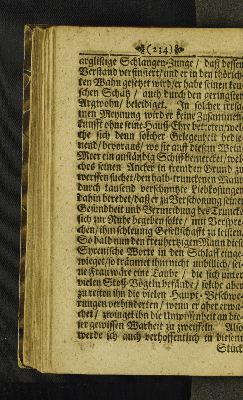 (234)
arglistige Schlangen-Zunge / daß dessen
Verstand verfinstert / und er in den thörich-
ten Wahn gesetzet wird / er habe seinen keu-
schen Schatz / auch durch den geringsten
Argwohn / beleidiget. In solcher irrsa-
men Meynung wird er keine Zusammen-
kunfft ohne seine Hauß-Ehre betreten / wel-
che sich denn solcher Gelegenheit
nend / bevoraus / wo sie auff diesem Wein-
Meer ein anständig Schiff bemercket / wel-
ches seinen Ancker in frembden Grund zu
werffen suchet / den halb-trunckenen Mann
durch tausend verschmitzte Liebkosungen
dahin beredet / daß er zu Verschonung seiner
Gesundheit und Vermeidung des Truncks
sich zur Ruhe bereiten solte / mit Verspre-
chen / ihm schleunig Gesellschafft zu leisten.
So bald nun den treuhertzigen Mann diese
Syrenische Worte in den Schlaff einge-
wieget / so träumet ihm nicht unbillich / sei-
ne Frau wäre eine Taube / die sich unter
vielen Stoß-Vögeln befände / solche aber
zu retten ihn die vielen Haupt-Beschwe-
rungen verhinderten / wenn er aber erwa-
chet / zwinget ihn die Unwissenheit an die-
ser gewissen Warheit zu zweiffeln. Also
werde ich auch verhoffentlich in diesem
Stück